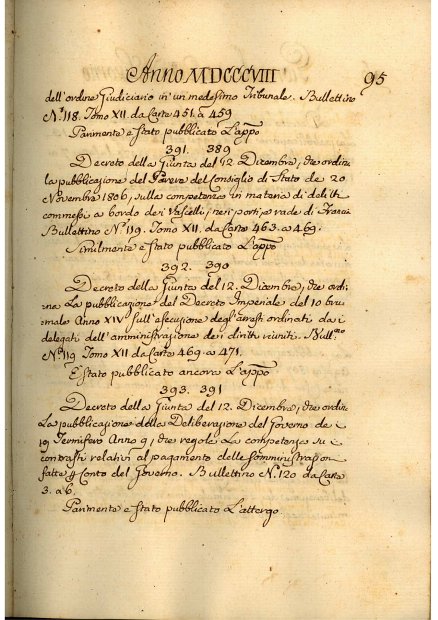 Anno MDCCCVIII 95
dell'ordine Giudiciario in un medesimo Tribunale. Bullettino
N.° 118. Tomo XII da Carte 451. a 459
Parimente è stato pubblicato L'appo
391. 389
Decreto della Giunta del 12 Dicembre, che ordina
la pubblicazione del Parere del Consiglio di Stato de 20
Novembre 1806, sulla competenza in materia di delitti
commessi a bordo dei Vascelli, nei porti, e rade di Francia
Bullettino N.° 119. Tomo XII. da Carte 463. a 469.
Similmente è stato pubblicato L'appo
392. 390
Decreto della Giunta del 12. Dicembre, che ordi-
na La pubblicazione del Decreto Imperiale del 10 bru-
male Anno XIV sull'esecuzione degl'arresti ordinati dai
delegati dell'amministrazione dei diritti riuniti. Bull.no
N.° 119 Tomo XII da Carte 469. a 471.
È stato pubblicato ancora L'appo
393. 391
Decreto della Giunta del 12. Dicembre, che ordina
La pubblicazione della Deliberazione del Governo de i
19 Termifero Anno 9, che regola La competenza su i
contrasti relativi al pagamento delle somministrazioni
fatte per Conto del Governo. Bullettino N.° 120 da Carte
3. a 6.
Parimente è stato pubblicato L'attergo